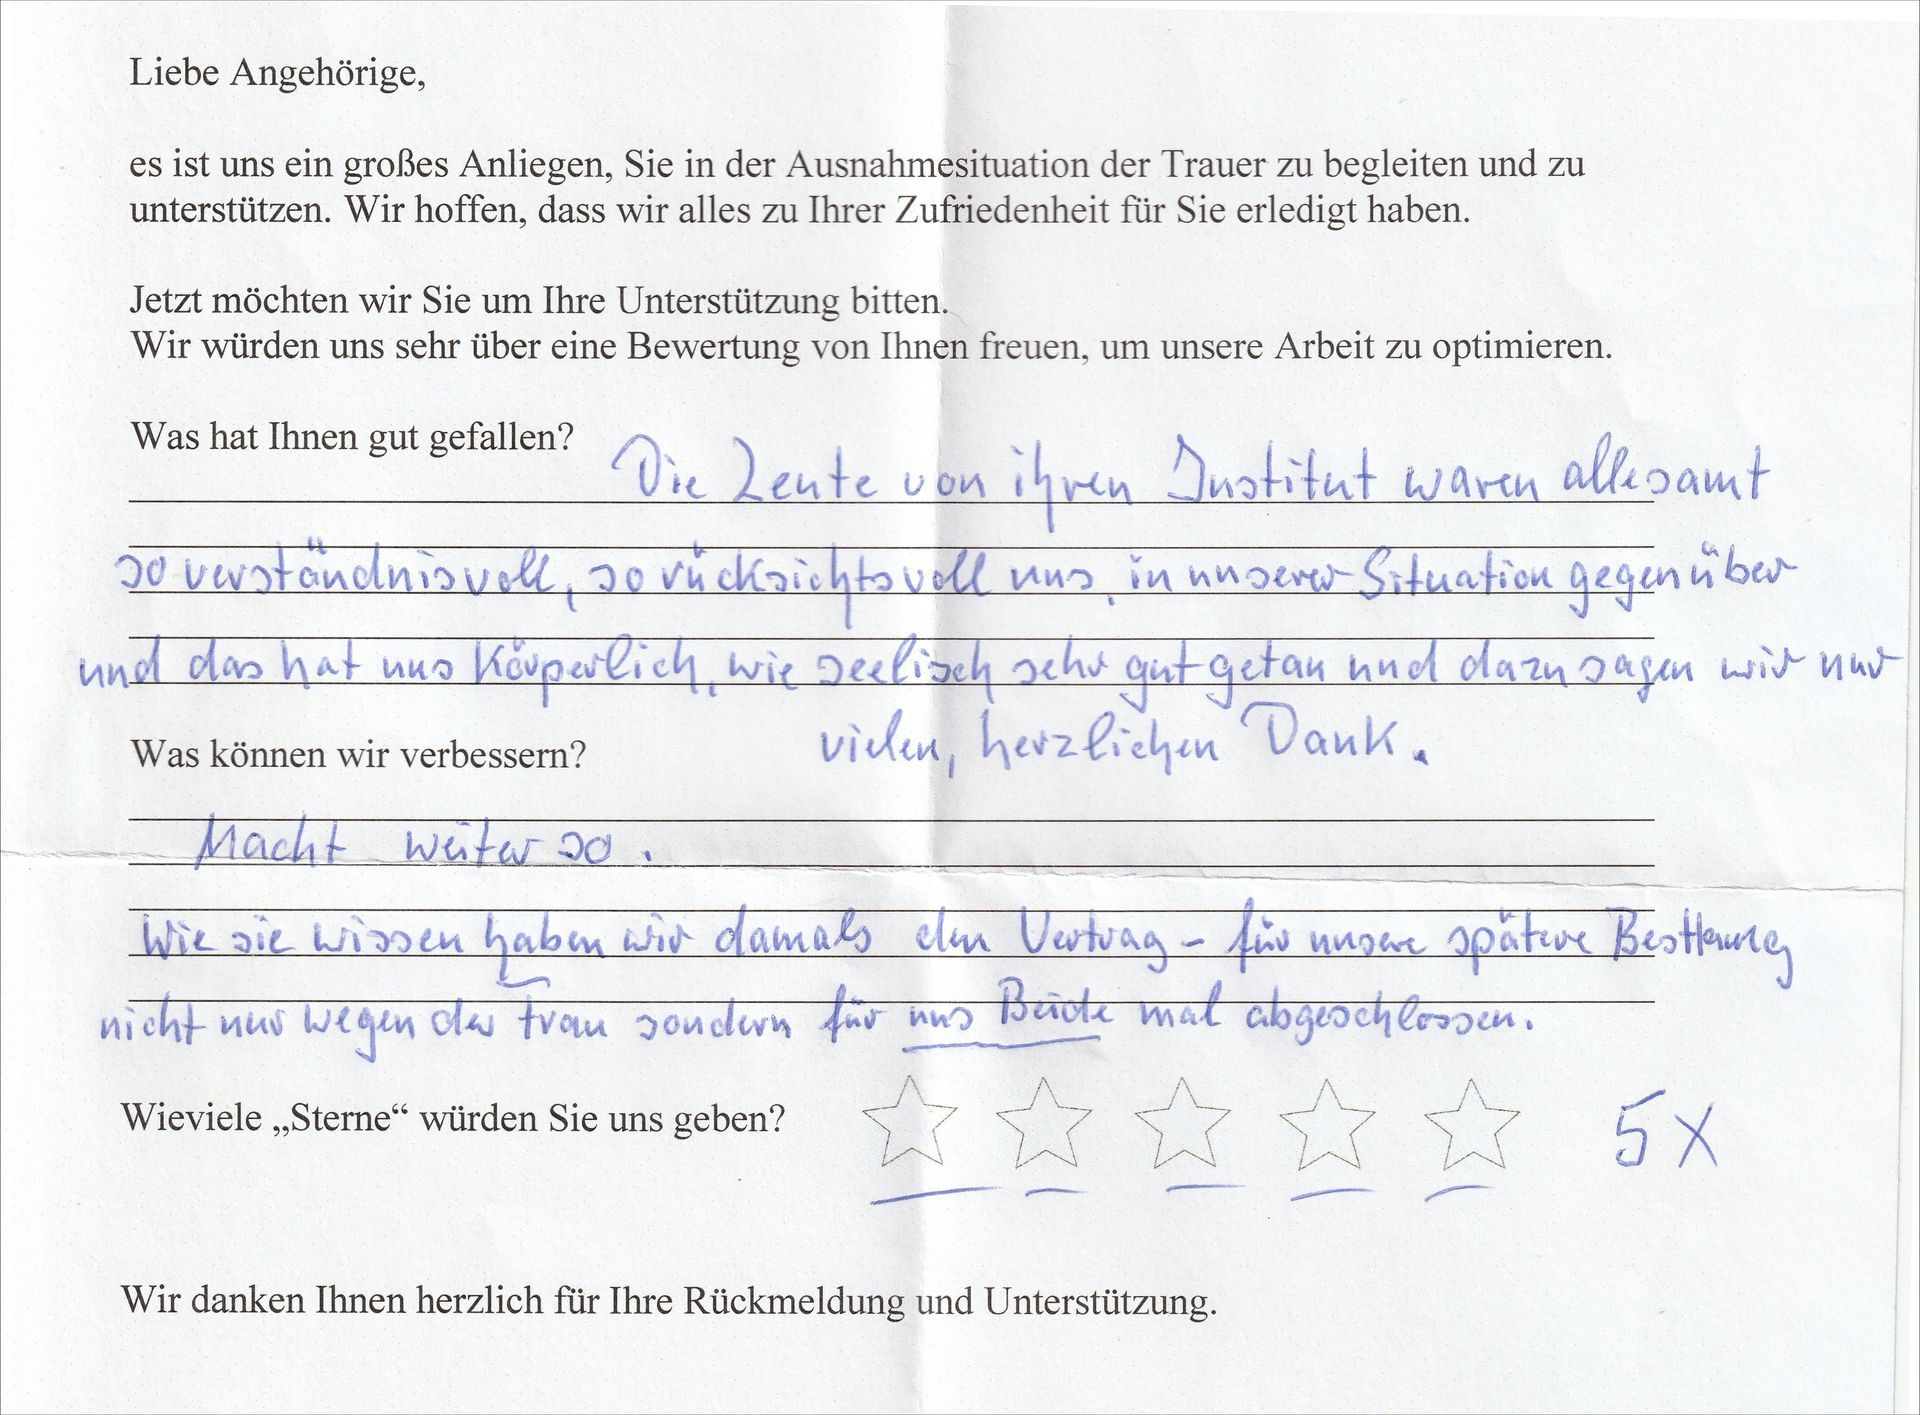 Liebe Angehörige,
es ist uns ein großes Anliegen, Sie in der Ausnahmesituation der Trauer zu begleiten und zu
unterstützen. Wir hoffen, dass wir alles zu Ihrer Zufriedenheit für Sie erledigt haben.
Jetzt möchten wir Sie um Ihre Unterstützung bitten.
Wir würden uns sehr über eine Bewertung von Ihnen freuen, um unsere Arbeit zu optimieren.
Was hat Ihnen gut gefallen?
Die Leute von ihren Institut waren allesamt
so verständnisvoll, so rücksichtsvoll uns, in unserer Situation gegenüber
und das hat uns Körperlich, wie seelisch sehr gut getan und dazu sagen wir nur
vielen, herzlichen Dank.
Was können wir verbessern?
Macht weiter so.
Wie sie wissen haben wir damals den Vertrag - für unsere spätere
nicht nur wegen der Frau sondern für uns Beide mal abgeschlossen.
Wieviele „Sterne“ würden Sie uns geben? 5 X
Wir danken Ihnen herzlich für Ihre Rückmeldung und Unterstützung.